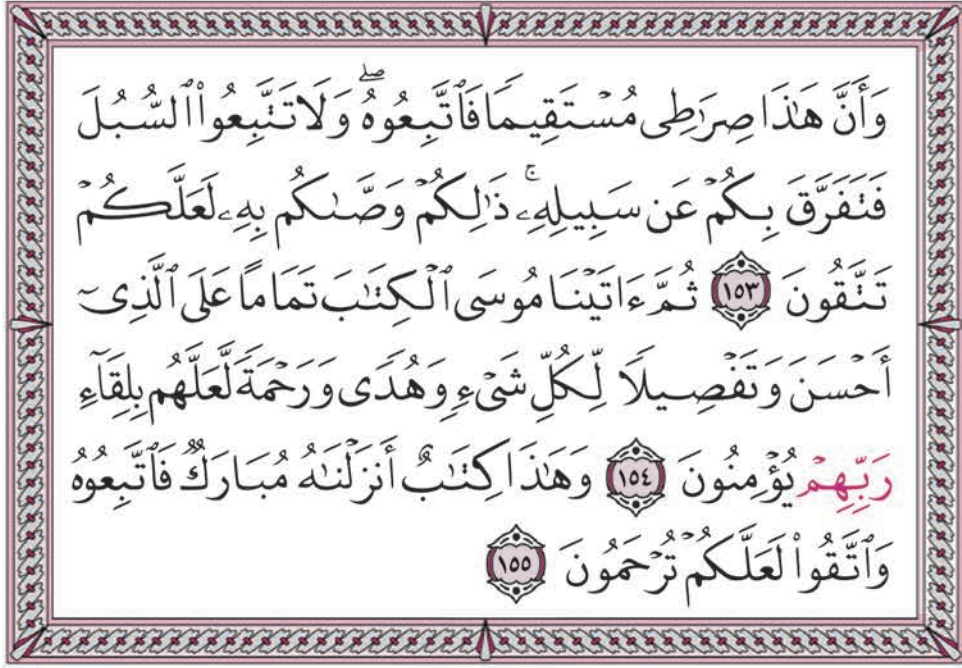 وَأَنَّ هَٰذَا صِرَٰطِى مُسْتَقِيمًا فَٱتَّبِعُوهُ ۖ وَلَا تَتَّبِعُوا۟ ٱلسُّبُلَ
فَتَفَرَّقَ بِكُمْ عَن سَبِيلِهِۦ ۚ ذَٰلِكُمْ وَصَّىٰكُم بِهِۦ لَعَلَّكُمْ
تَتَّقُونَ ١٥٣ ثُمَّ ءَاتَيْنَا مُوسَى ٱلْكِتَٰبَ تَمَامًا عَلَى ٱلَّذِىٓ
أَحْسَنَ وَتَفْصِيلًا لِّكُلِّ شَىْءٍ وَهُدًى وَرَحْمَةً لَّعَلَّهُم بِلِقَآءِ
رَبِّهِمْ يُؤْمِنُونَ ١٥٤ وَهَٰذَا كِتَٰبٌ أَنزَلْنَٰهُ مُبَارَكٌ فَٱتَّبِعُوهُ
وَٱتَّقُوا۟ لَعَلَّكُمْ تُرْحَمُونَ ١٥٥